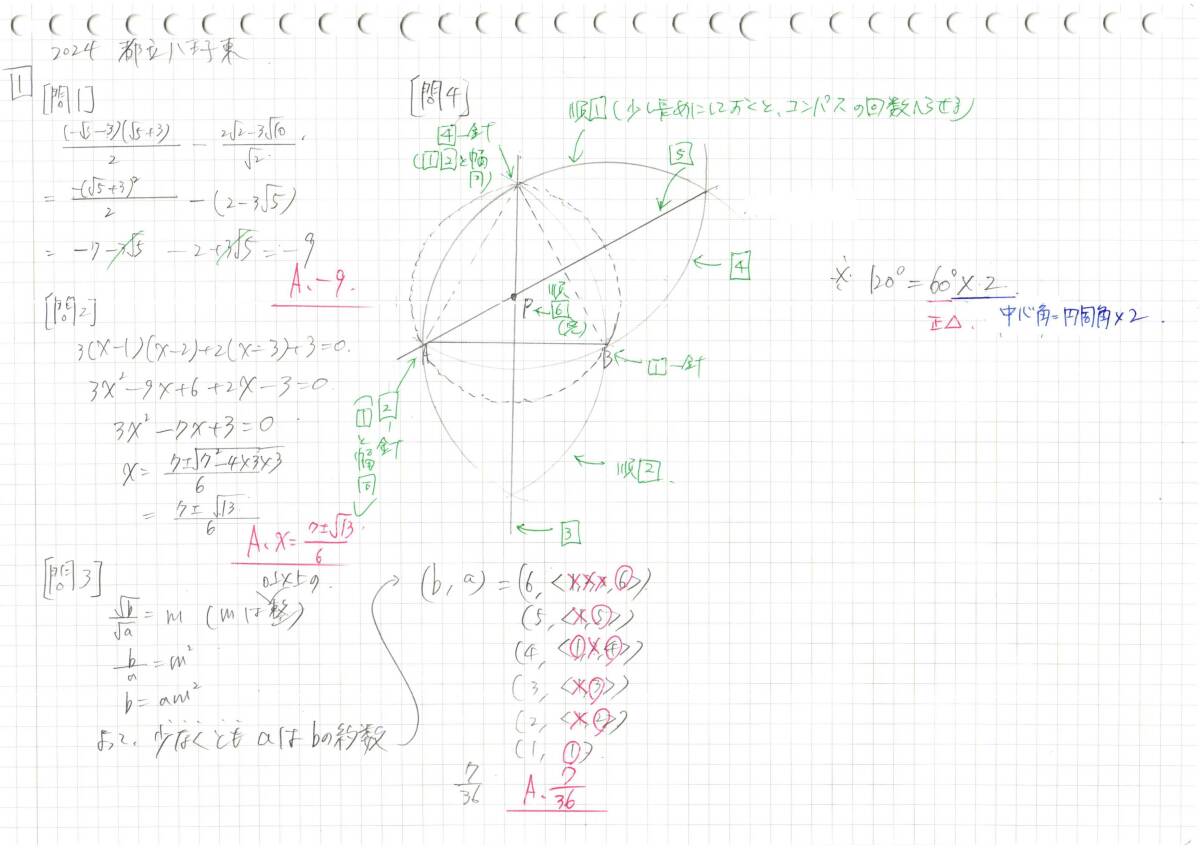 2024 都立八王子東
1
[問1]
(-√5-3)(√5+3)/2 - (2√2-3√10)/√2
= -(√5+3)²/2 - (2-3√5)
= -7-3√5 -2+3√5 = -9
A、-9.
[問2]
3(x-1)(x-2)+2(x-3)+3=0.
3x²-9x+6+2x-3=0
3x²-7x+3=0
x= (7±√7²-4×3×3)/6
= (7±√13)/6
A、x= (7±√13)/6
[問3]
√b/√a = m (mは整)
b/a = m²
b= am²
よって、少なくとも aは bの約数
(b, a) = (6, <×,×,×,⑥>)
(5, <×,⑤>)
(4, <①,×,④>)
(3, <×,③>)
(2, <×,②>)
(1, ①)
7/36
A、7/36
[問4]
順1(少し長めにしておくと、コンパスの回数へらせる)
4-針
(1 2と幅同)
5
4
P
順6(完)
A
B
1-針
2-針
(1と幅同)
順2
3
※ 120°=60°×2
正△. 中心角=円周角×2.